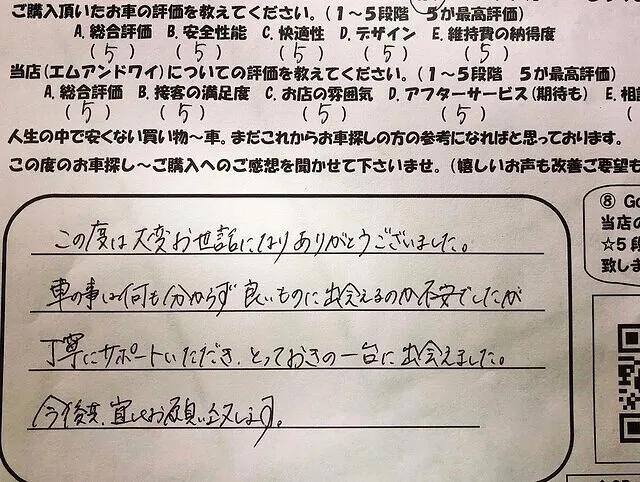 ご購入頂いたお車の評価を教えてください。(1～5段階 5が最高評価)
A. 総合評価 B. 安全性能 C. 快適性 D. デザイン E. 維持費の納得度
(5) (5) (5) (5) (5)
当店(エムアンドワイ)についての評価を教えてください。(1～5段階 5が最高評価)
A. 総合評価 B. 接客の満足度 C. お店の雰囲気 D. アフターサービス(期待も) E. 相談
(5) (5) (5) (5) (
人生の中で安くない買い物～車。まだこれからお車探しの方の参考になればと思っております。
この度のお車探し～ご購入へのご感想を聞かせて下さいませ。(嬉しいお声も改善ご要望も
この度は大変お世話になりありがとうございました。
車の事は何も分からず良いものに出会えるのか不安でしたが
丁寧にサポートいただき、とっておきの一台に出会えました。
今後共、宜しくお願い致します。
⑧ Go
当店の
☆5段
致しま